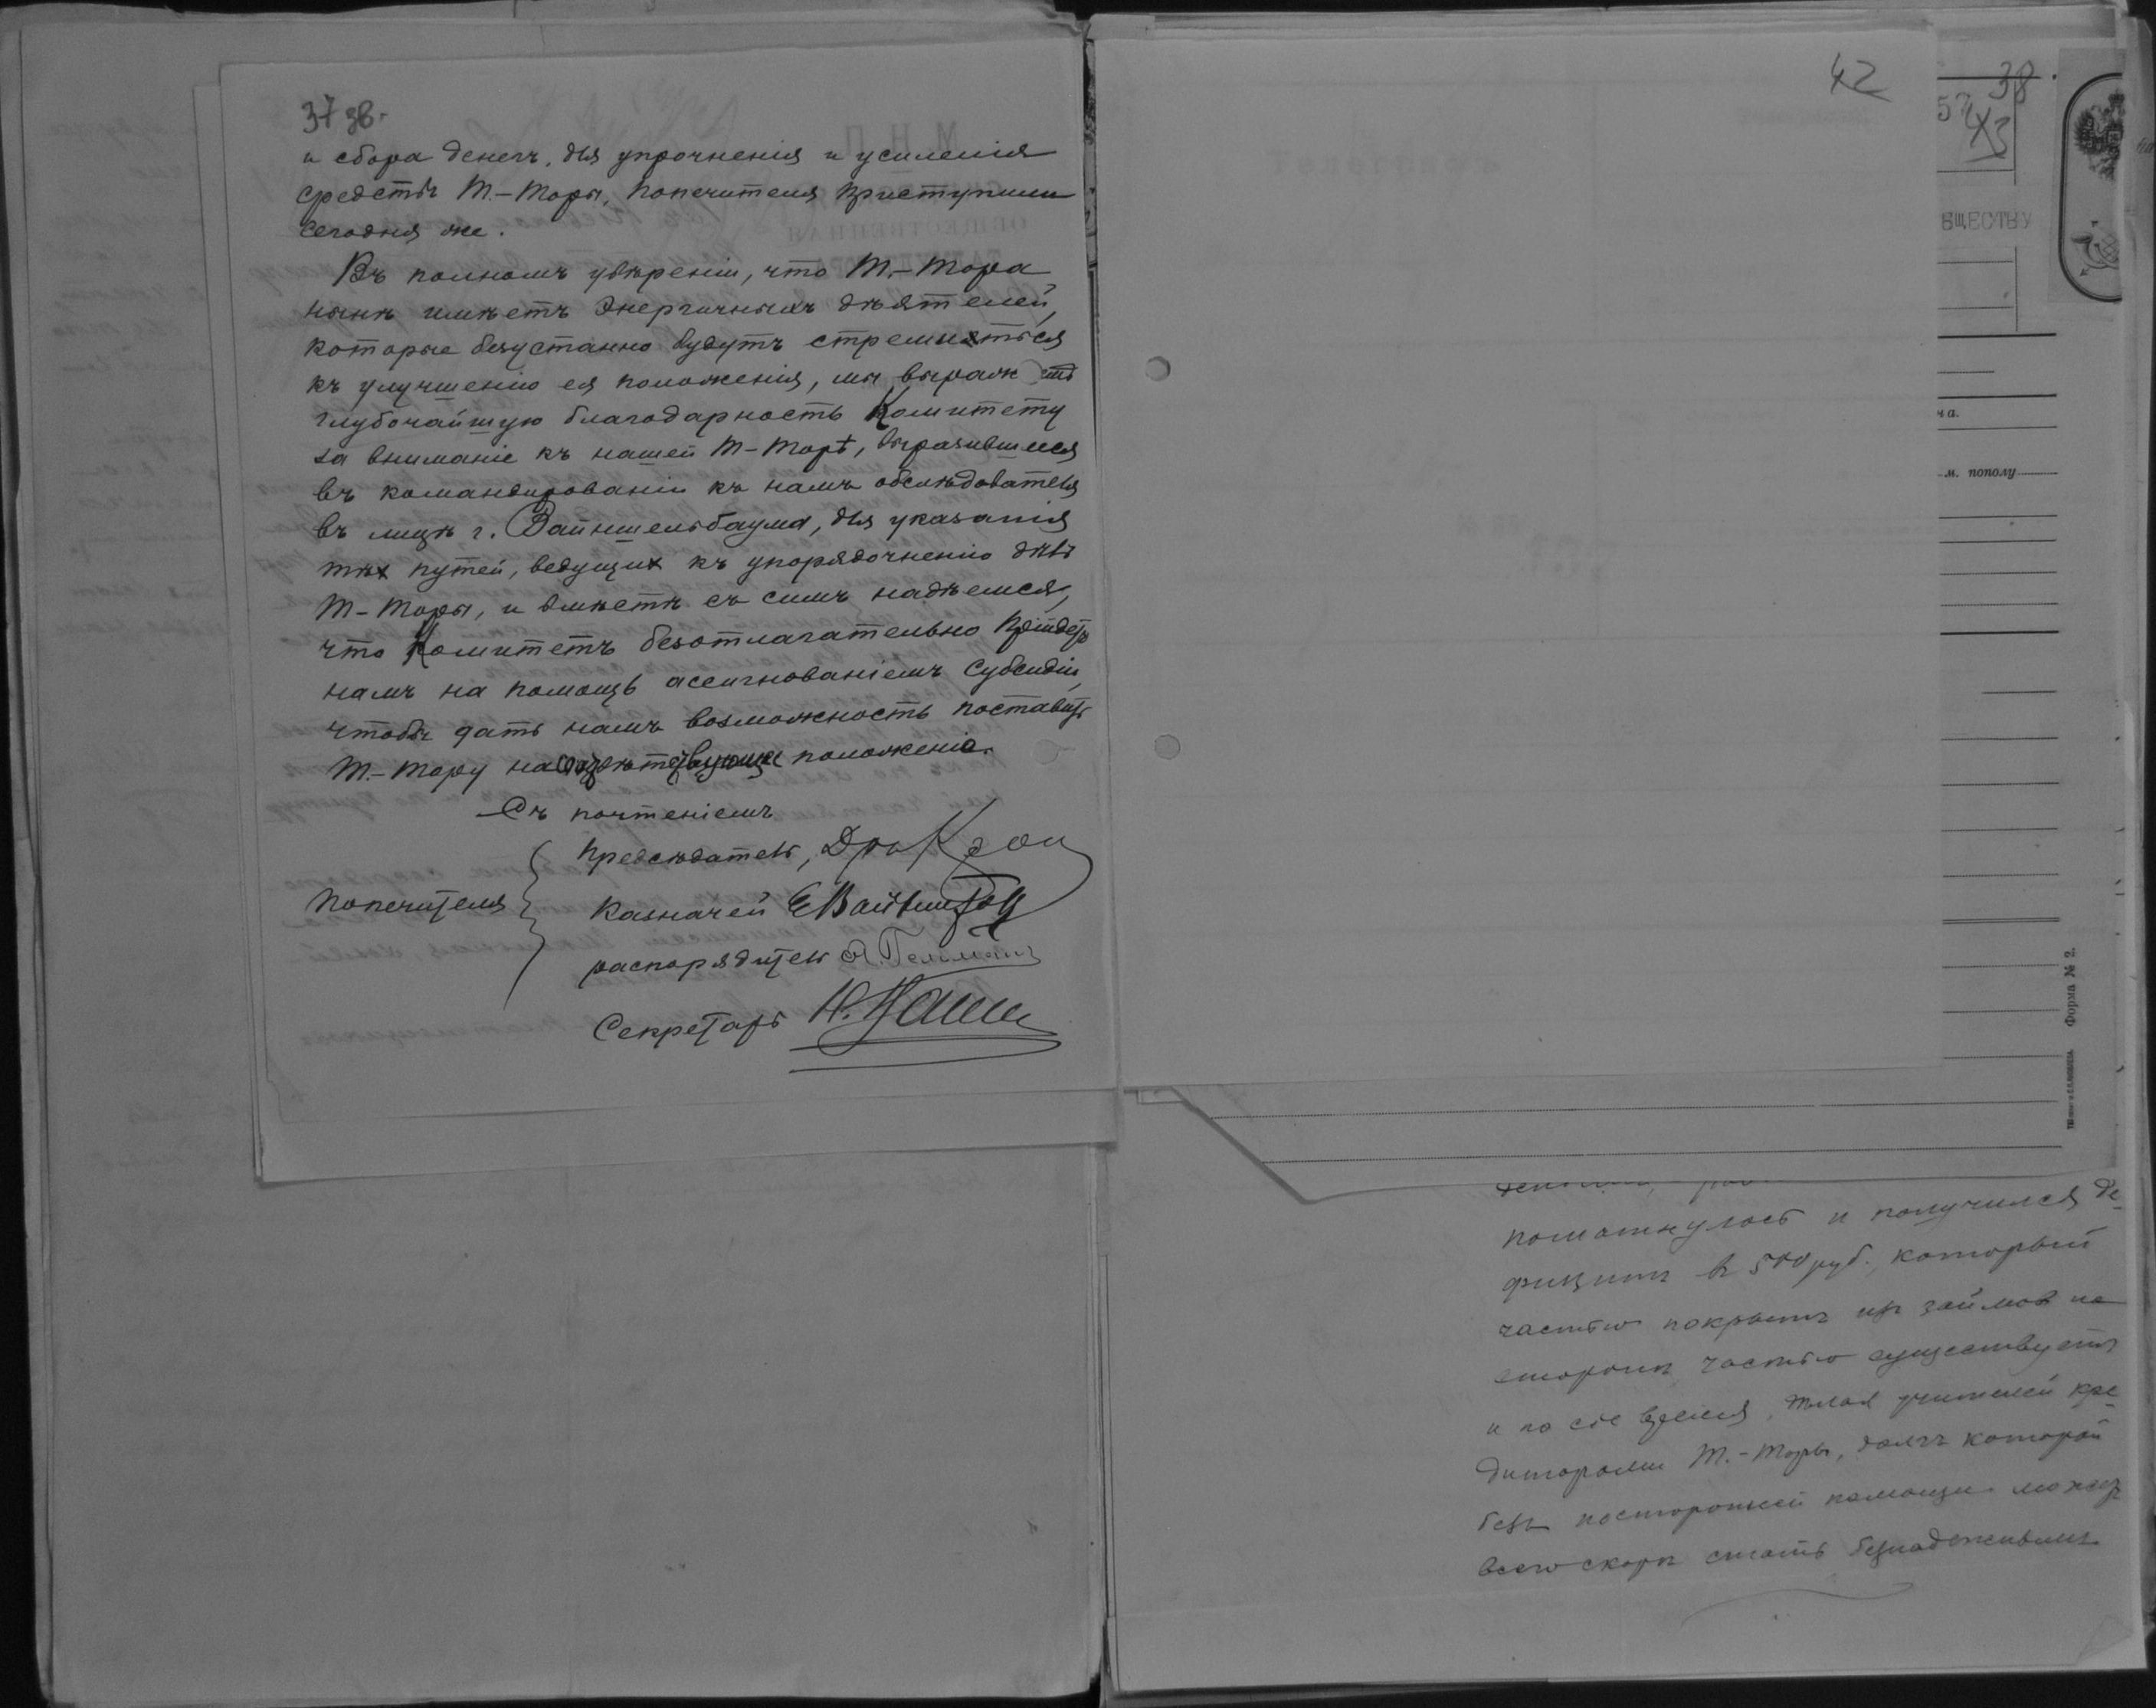 37 зв.
и сбора денегъ, для упроченія и усиленія
средствъ Т.-Торы, попечителя приступили
сегодня же.
Въ полномъ увѣреніи, что Т.-Тора
нынѣ имѣетъ энергичныхъ дѣятелей,
которые безустанно будутъ стремиться
къ улучшенію ея положенія, мы выраж
глубочайшую благодарность Комитету
за вниманіе къ нашей Т-Торѣ, выразившееся
въ командированіи къ намъ обслѣдователя
въ лицѣ г. Вайнштельбаума, для указанія
тѣх путей, ведущих къ упорядоченію дѣлъ
Т-Торы, и вмѣстѣ съ симъ надѣемся,
что Комитетъ безотлагательно прійдетъ
намъ на помощь ассигнованіемъ субсидіи,
чтобы дать намъ возможность поставить
Т.-Тору на соотвѣтствующее положеніе.
Съ почтеніемъ
Попечителя
Предсѣдатель, Д-ръ
Казначей
распорядитель
Секретарь
42
38
57
43
БЩЕСТВУ
на.
м. пополу
Форма № 2.
пошатнулось и получился де-
фицитъ в 500 руб., который
частью покрытъ изъ займов на
сторонѣ частью существуетъ
и по сіе время, дѣлая учителей кре-
диторами Т.-Торы, долгъ которой
безъ посторонней помощи можетъ
всего скорѣ стать безнадежнымъ.